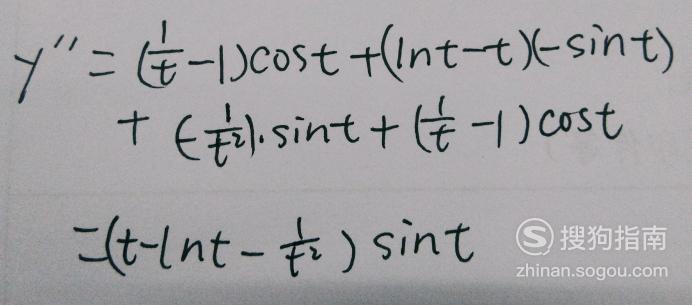 y''=(1/t-1)cost+(lnt-t)(-sint)
+(-1/t²)·sint+(1/t-1)cost
=(t-lnt-1/t²)sint
搜狗指南
zhinan.sogou.com